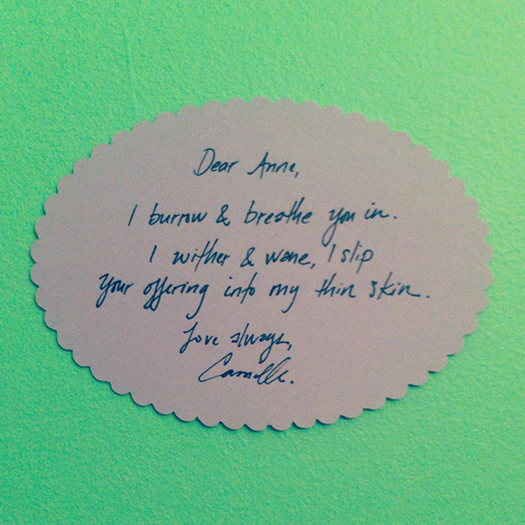 Dear Anne,
I burrow & breathe you in.
I wither & wane, I slip
Your offering into my thin skin.
Love always,
Camille.